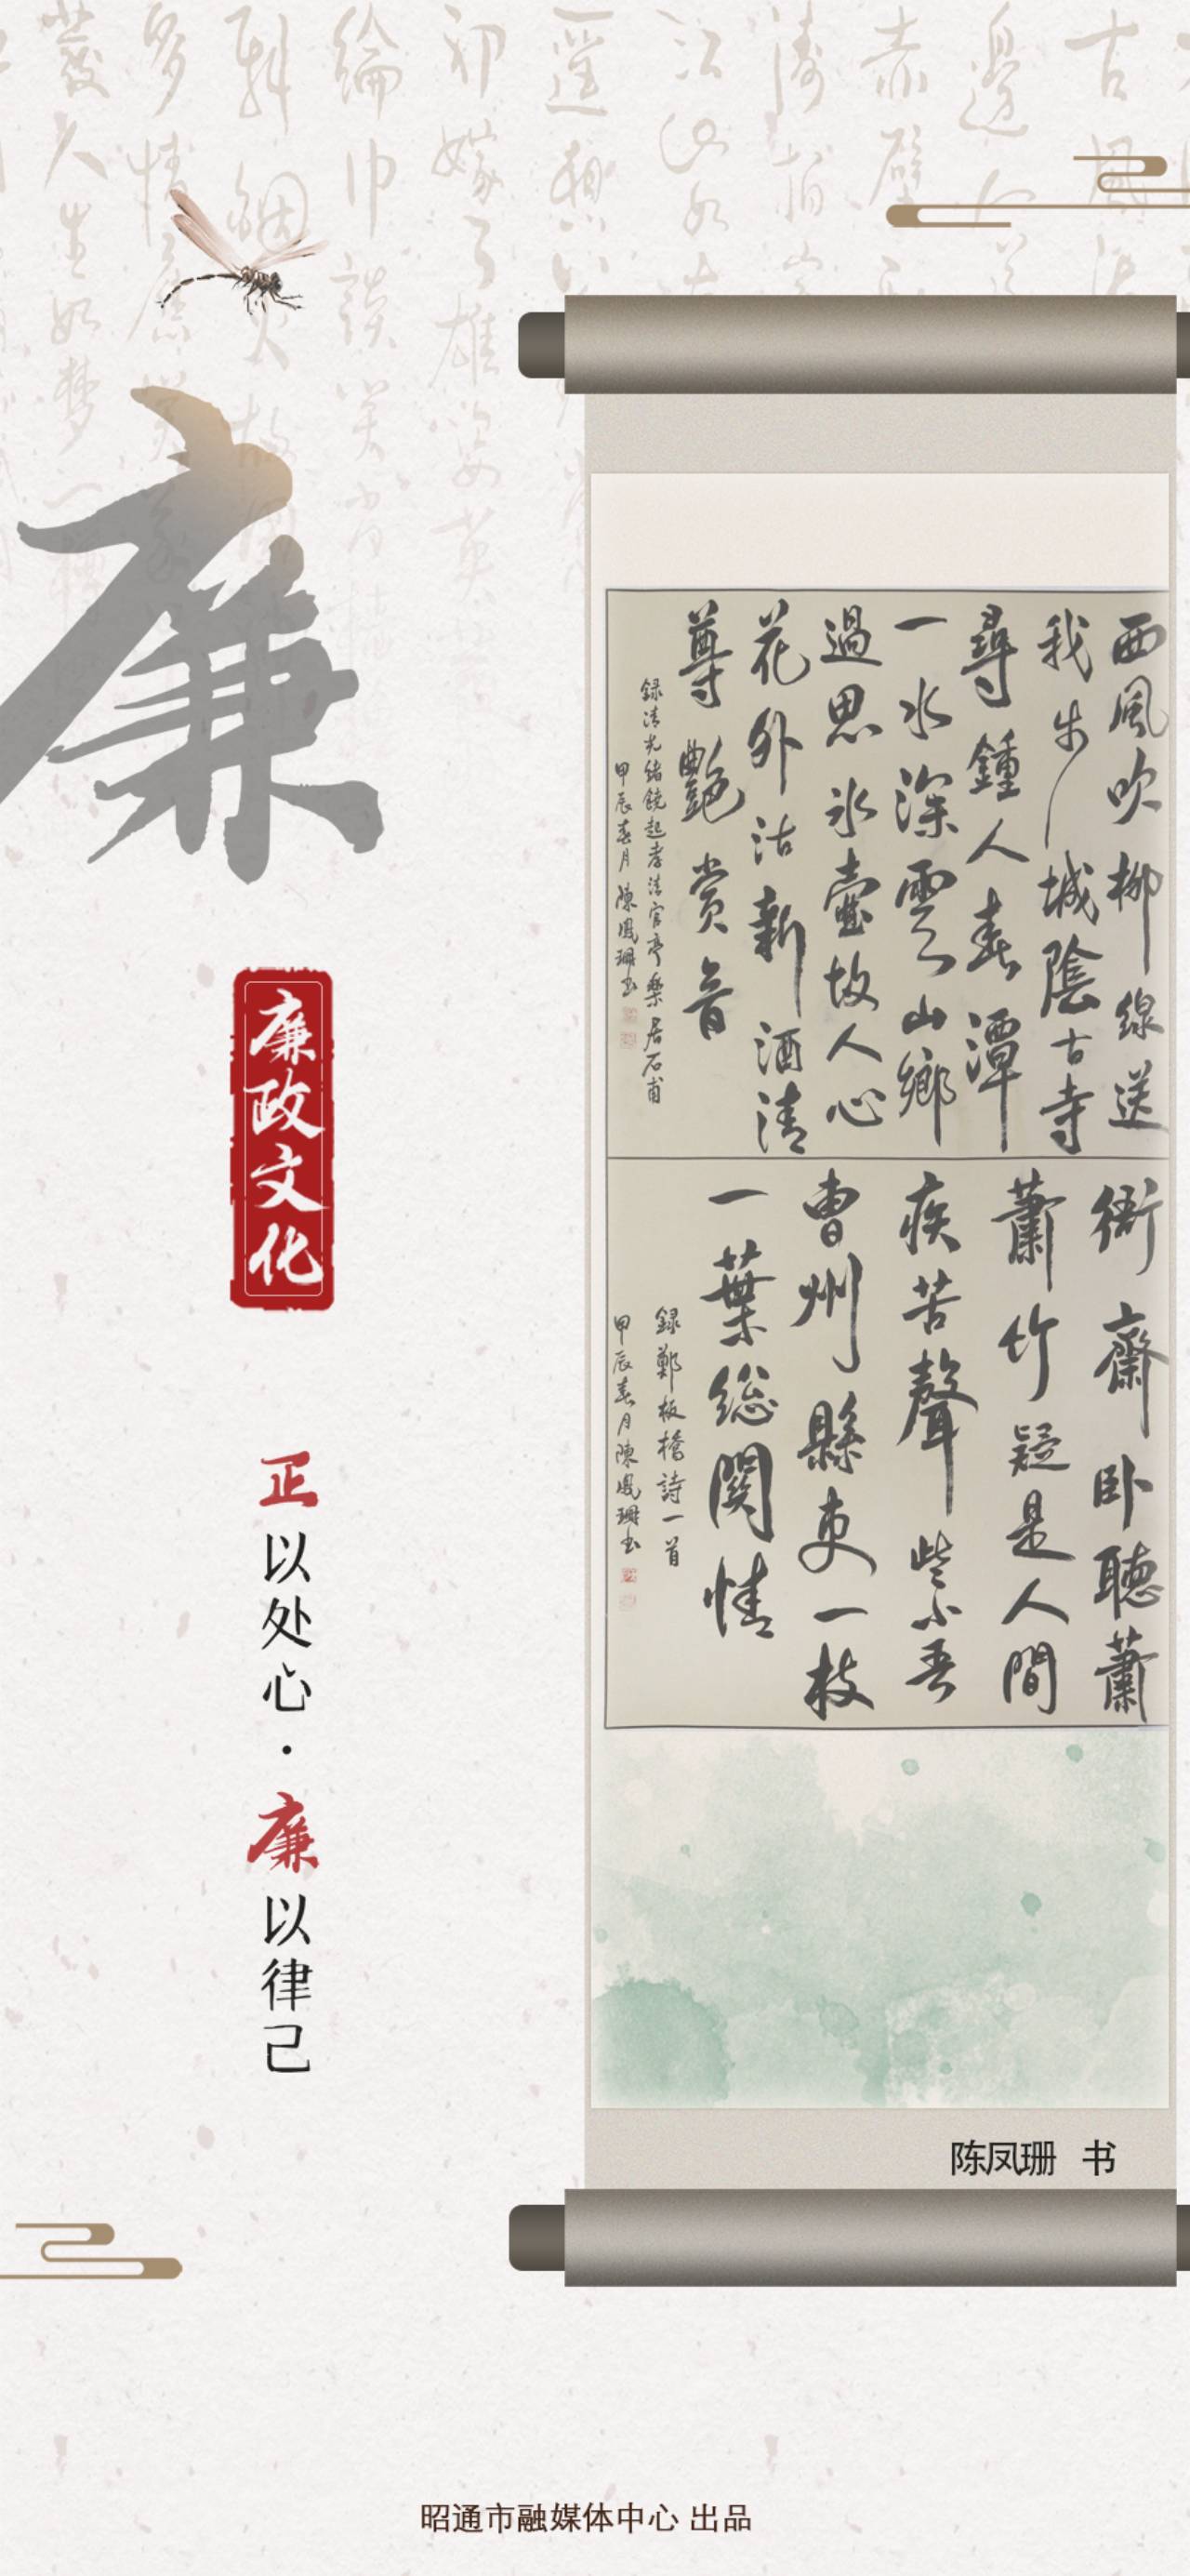 廉
廉政文化
正以处心·廉以律己
西風吹柳線送
我步城陰古寺
尋鍾人春潭
一水深雲山鄉
過思冰壺故人心
花外沽新酒清
尊艷賞音
録清光緒饒起孝清官亭樂居石甫
甲辰春月陳鳳珊書
衙齋卧聽蕭
蕭竹疑是人間
疾苦聲些小吾
曹州縣吏一枝
一葉総関情
録鄭板橋詩一首
甲辰春月陳鳳珊書
陈凤珊 书
昭通市融媒体中心 出品